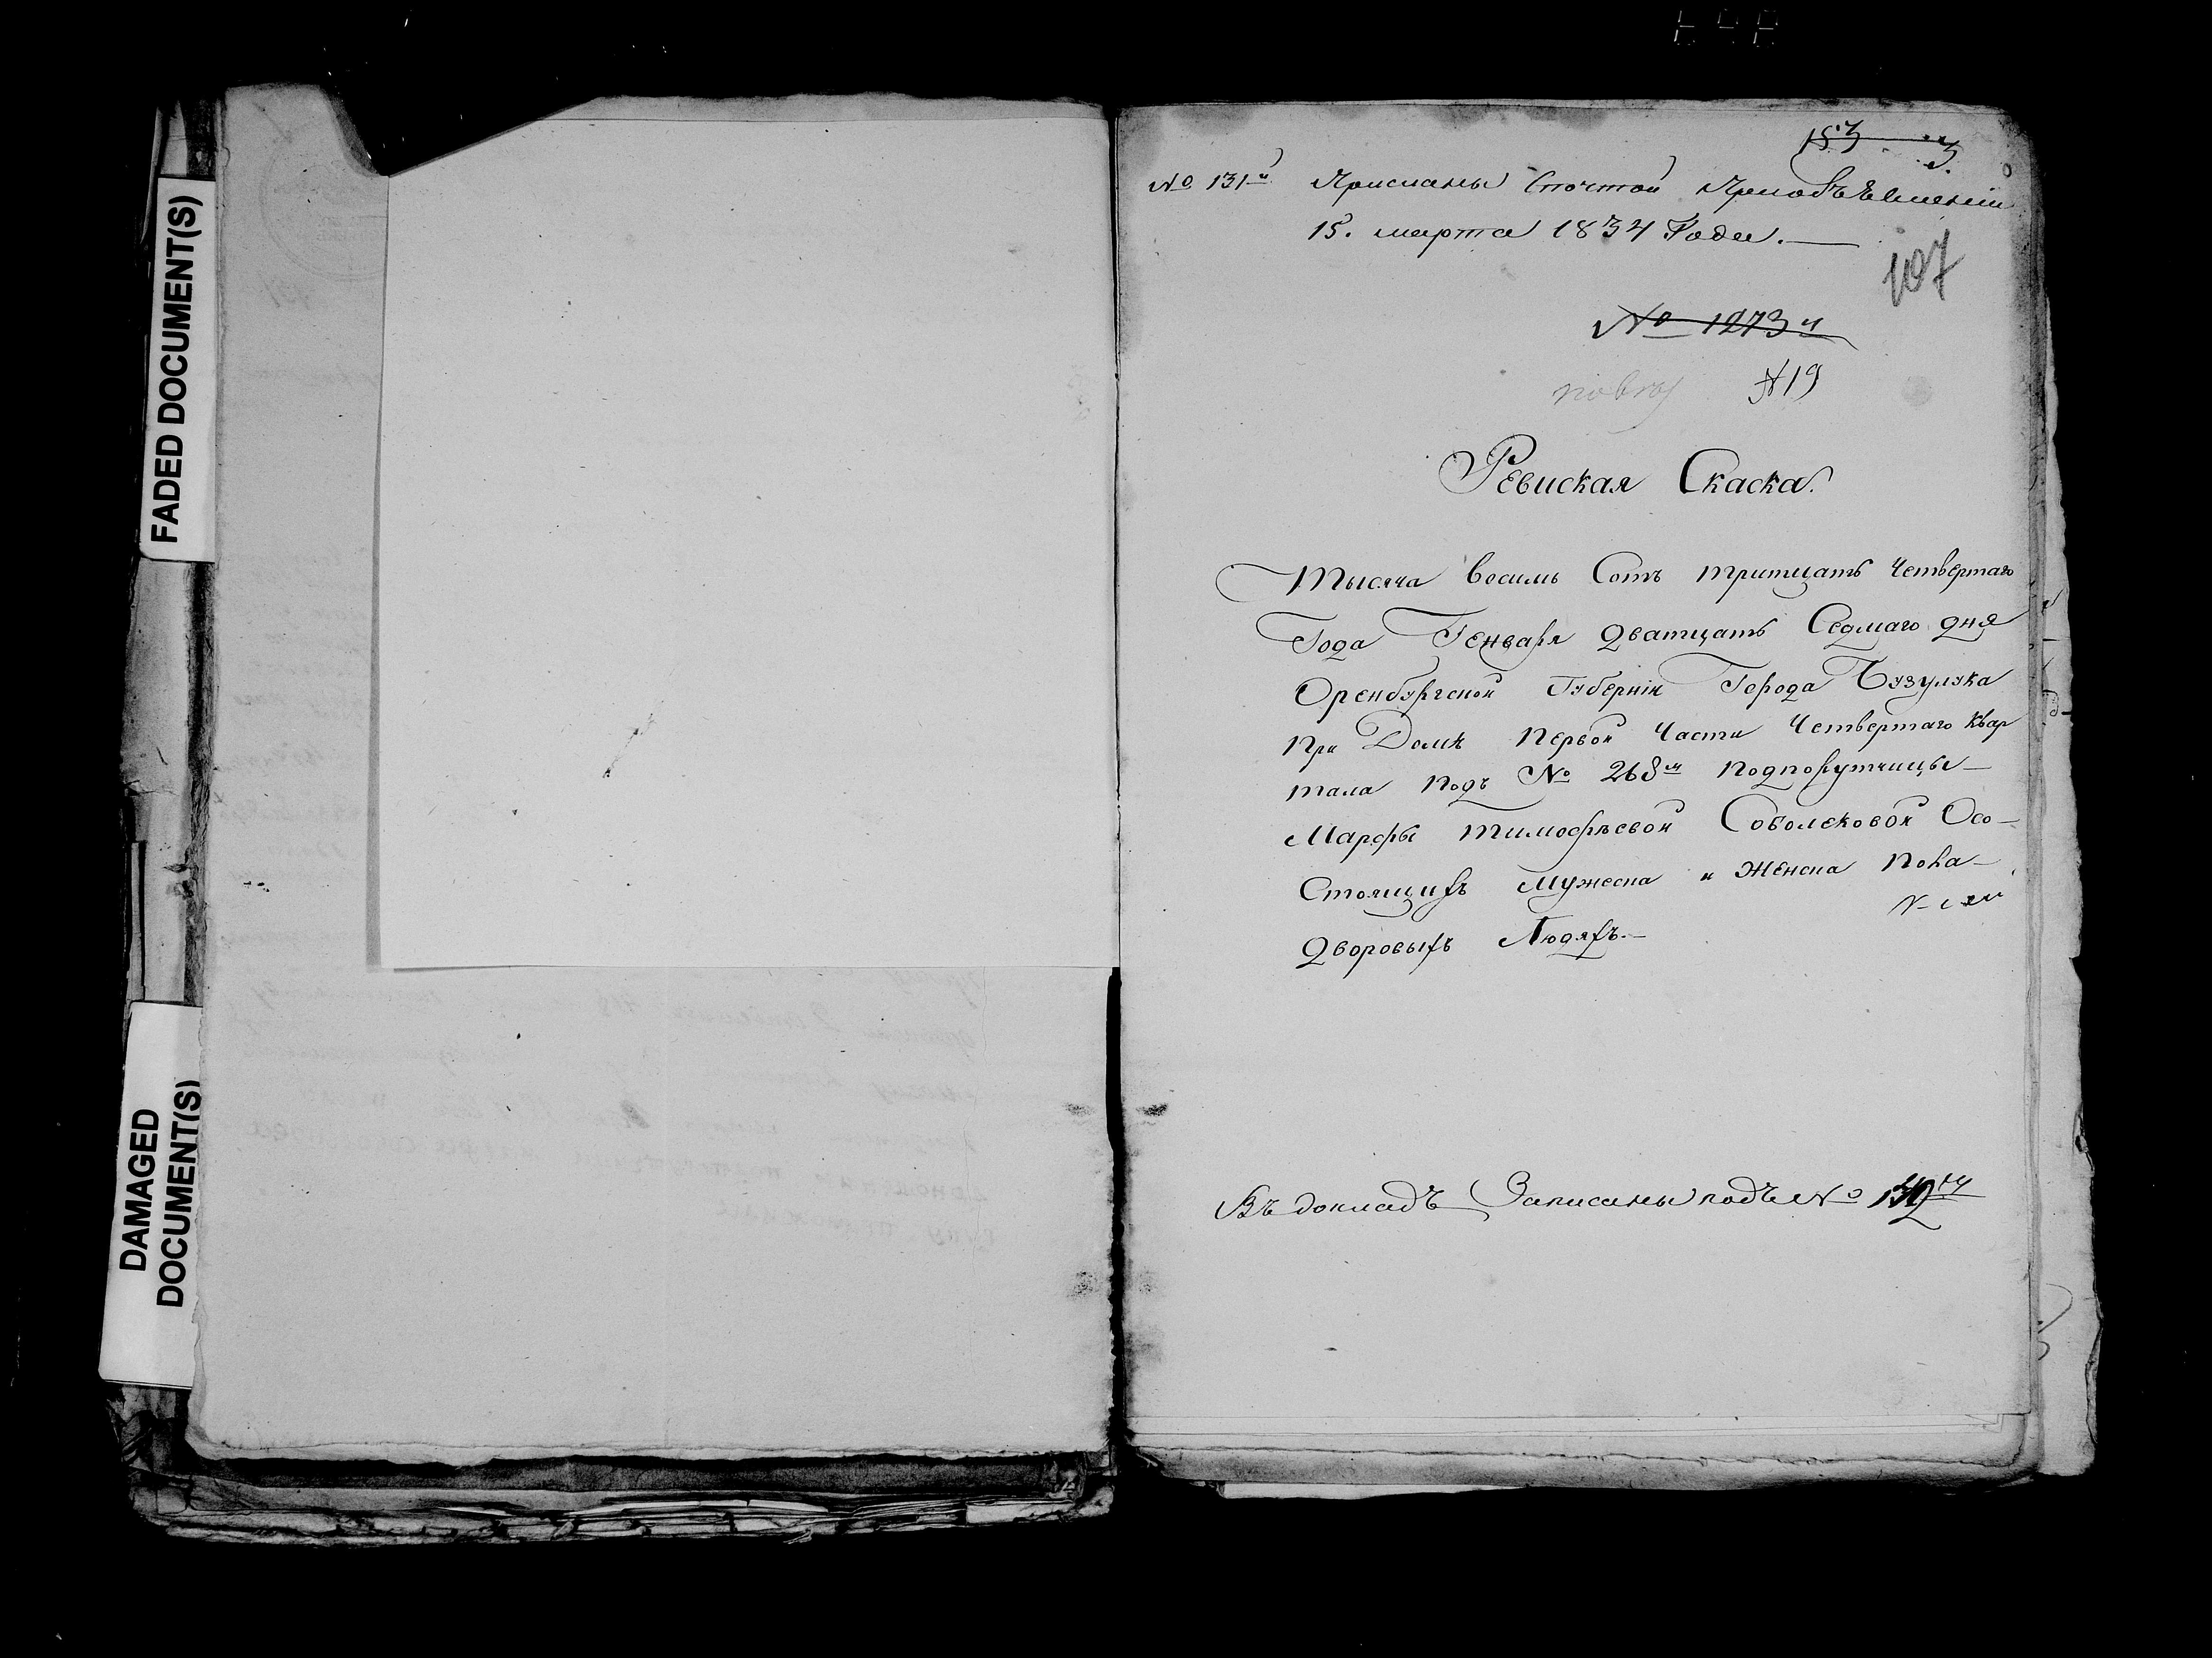 FADED DOCUMENT(S)
DAMAGED
DOCUMENT(S)
153
№ 131й Присланы Спочтой приобъевлении
15. марта 1834 Года.—
107
№ 1273й
№ 19
Ревиская Скаска.
Тысяча восимь Сотъ тритцать четвертаго
Года Генваря дватцать Седмаго дня
Оренбургской Губернiи Города Бузулука
при Домѣ первой Части Четвертаго Квар
тала подъ № 268м подпорутчицы—
Марфы тимофѣевой Соболековой Осо—
Стоящихъ мужеска и женска пола—
дворовыхъ Людяхъ.—
Въ докладъ Записаны подъ №